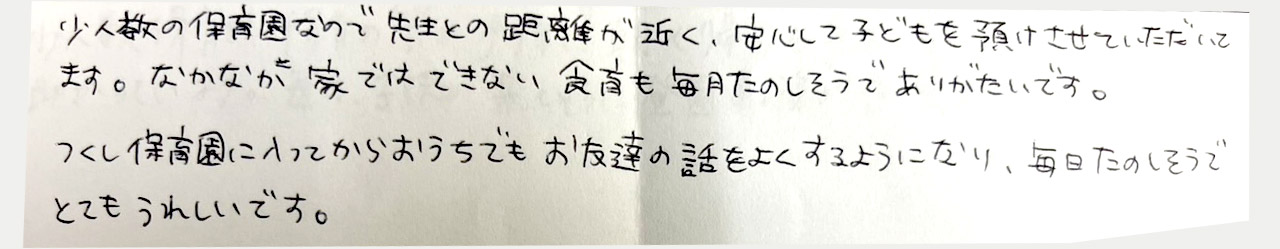 少人数の保育園なので先生との距離が近く、安心して子どもを預けさせていただいて
ます。なかなか家ではできない食育も毎月たのしそうでありがたいです。
つくし保育園に入ってからおうちでもお友達の話をよくするようになり、毎日たのしそうで
とてもうれしいです。